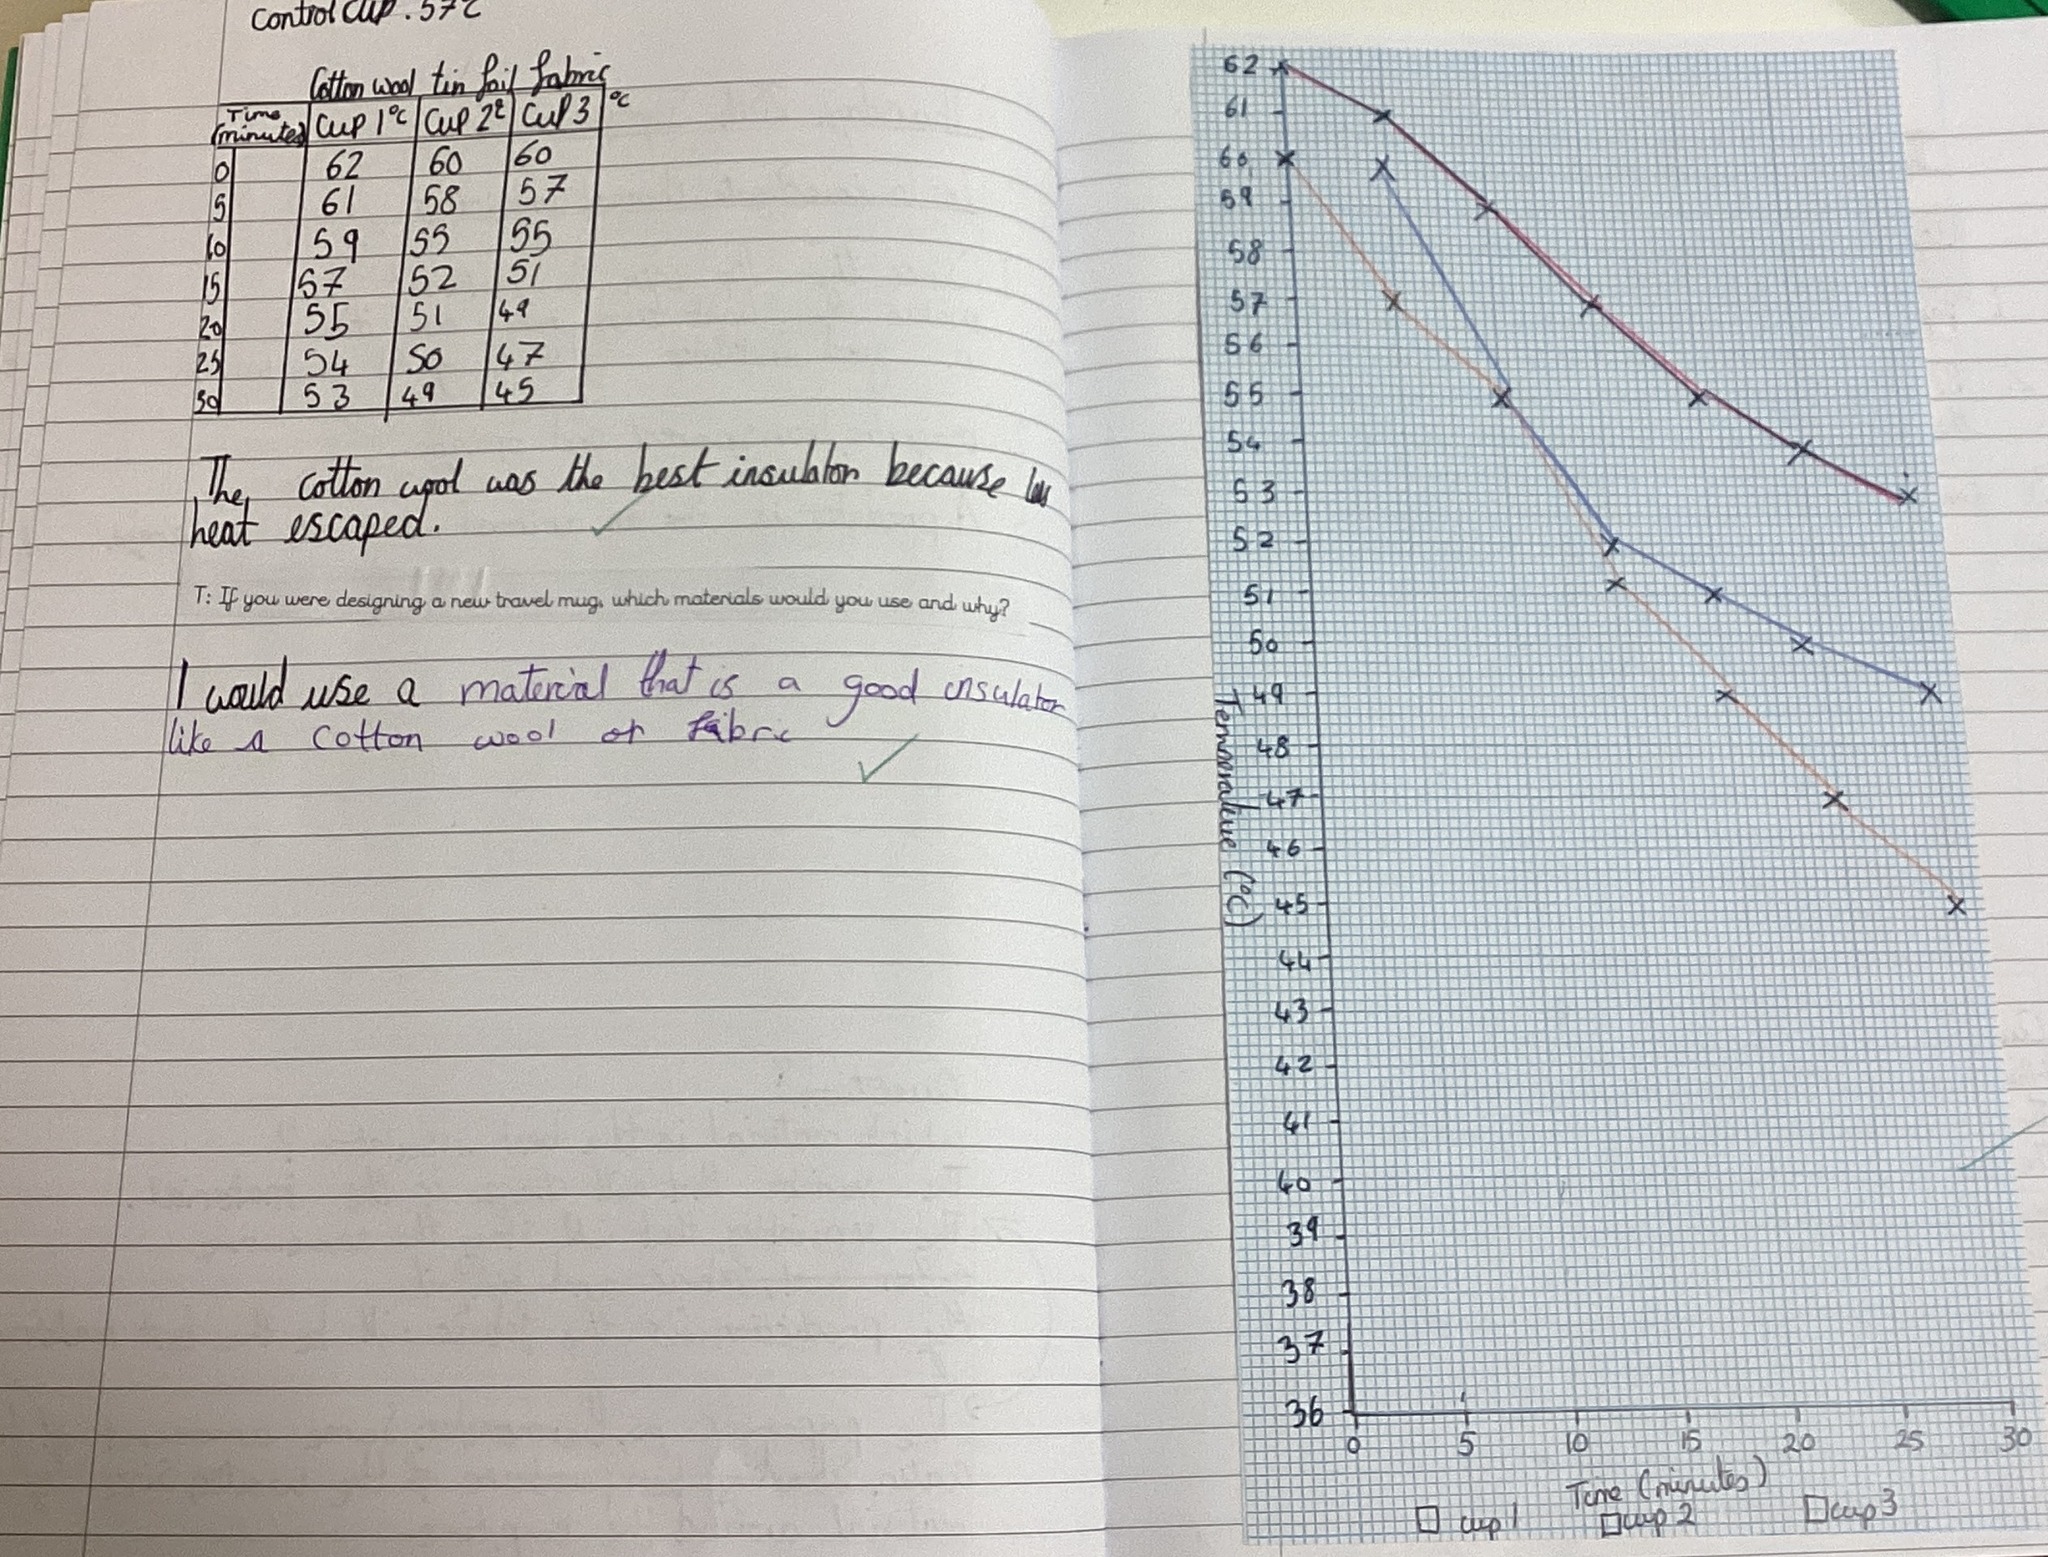 Control Cup . 57°C
Cotton wool tin foil fabric
Time (minutes) Cup 1°C Cup 2°C Cup 3 °C
0 62 60 60
5 61 58 57
10 59 55 55
15 57 52 51
20 55 51 49
25 54 50 47
30 53 49 45
The cotton wool was the best insulator because
heat escaped.
T: If you were designing a new travel mug, which materials would you use and why?
I would use a material that is a good insulator
like a cotton wool or fabric
62
61
60
59
58
57
56
55
54
53
52
51
50
49
48
47
46
45
44
43
42
41
40
39
38
37
36
Temperature (°C)
0 5 10 15 20 25 30
Time (minutes)
cup 1 cup 2 cup 3